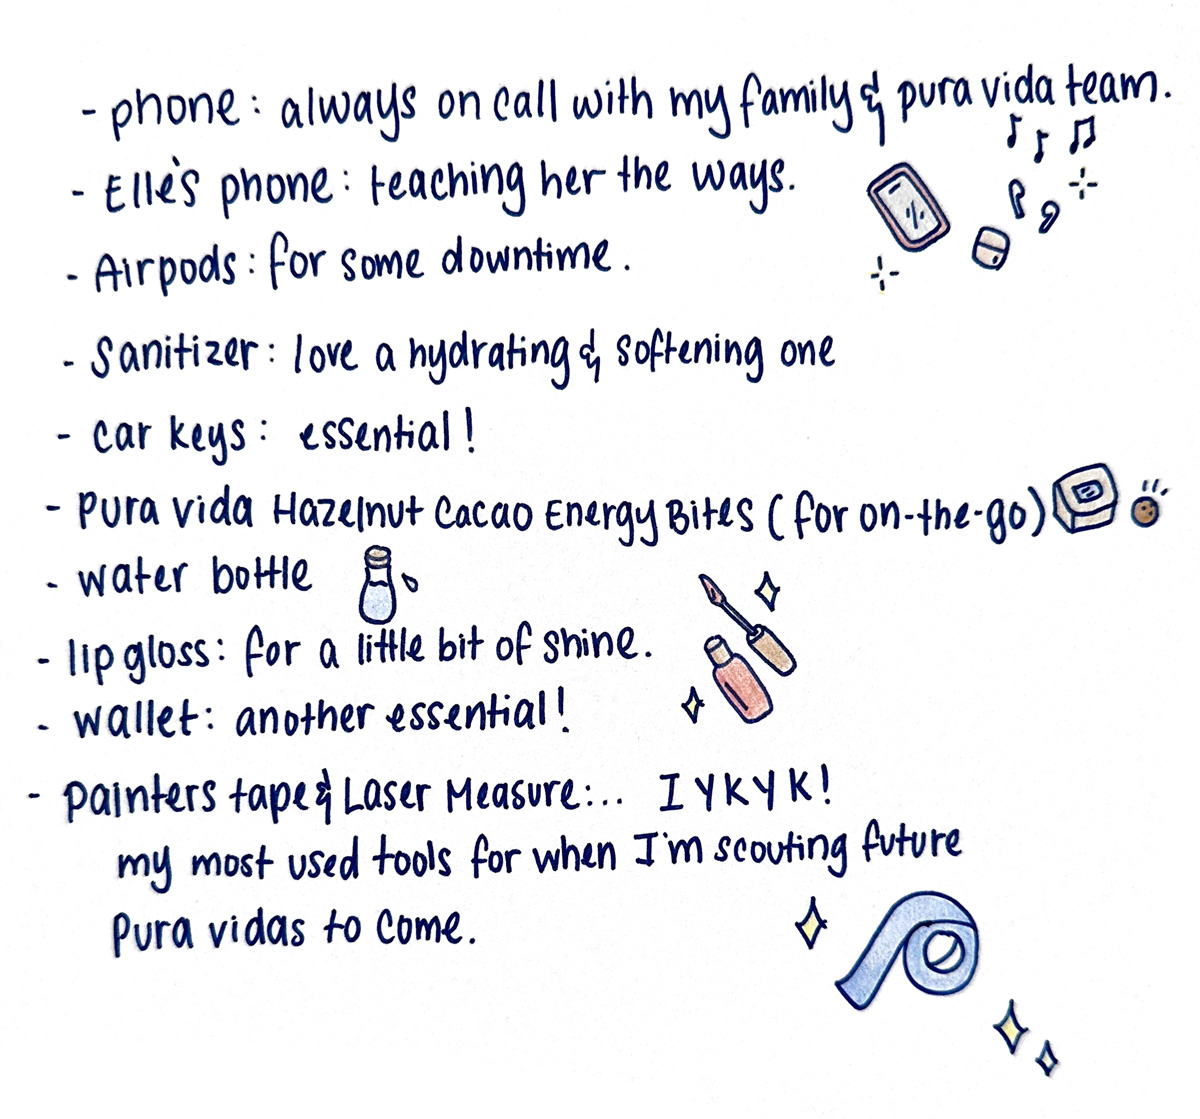 - phone: always on call with my family & pura vida team.
- Elle's phone: teaching her the ways.
- Airpods: for some downtime.
- Sanitizer: love a hydrating & softening one
- car keys: essential!
- pura vida Hazelnut Cacao Energy Bites (for on-the-go)
- water bottle
- lip gloss: for a little bit of shine.
- wallet: another essential!
- painters tape & Laser Measure:... IYKYK!
my most used tools for when I'm scouting future
pura vidas to come.